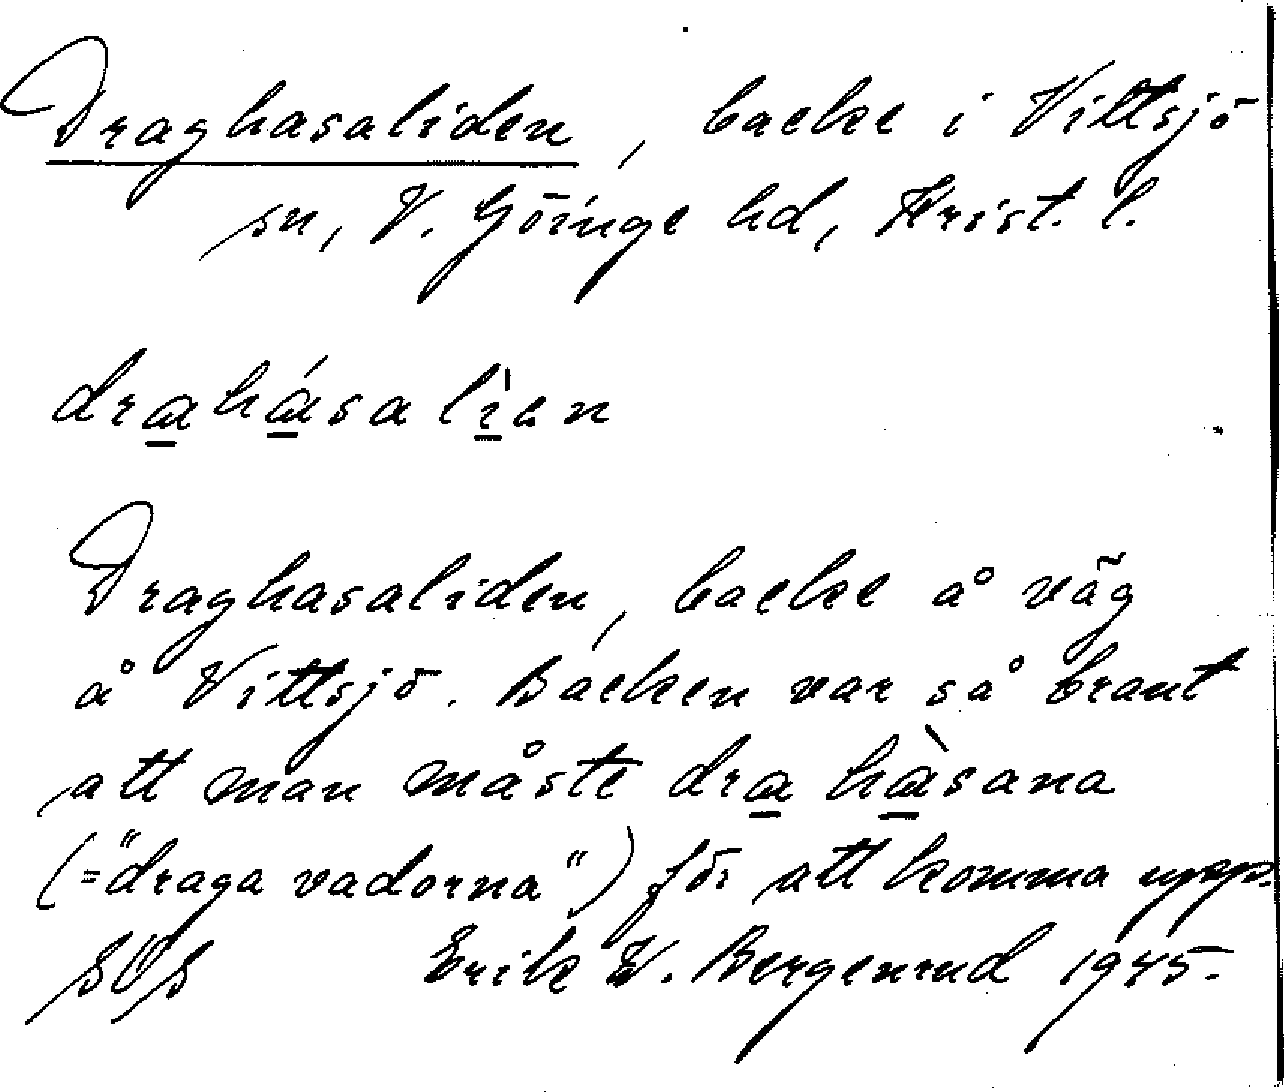 Draghasaliden, backe i Vittsjö
sn, V. Göinge hd, Krist. l.
drahásalìen
Draghasaliden, backe å väg
å Vittsjö. Backen var så brant
att man måste dra hàsana
(="draga vadorna") för att komma upp.
SOS Erik W. Bergenrud 1945.